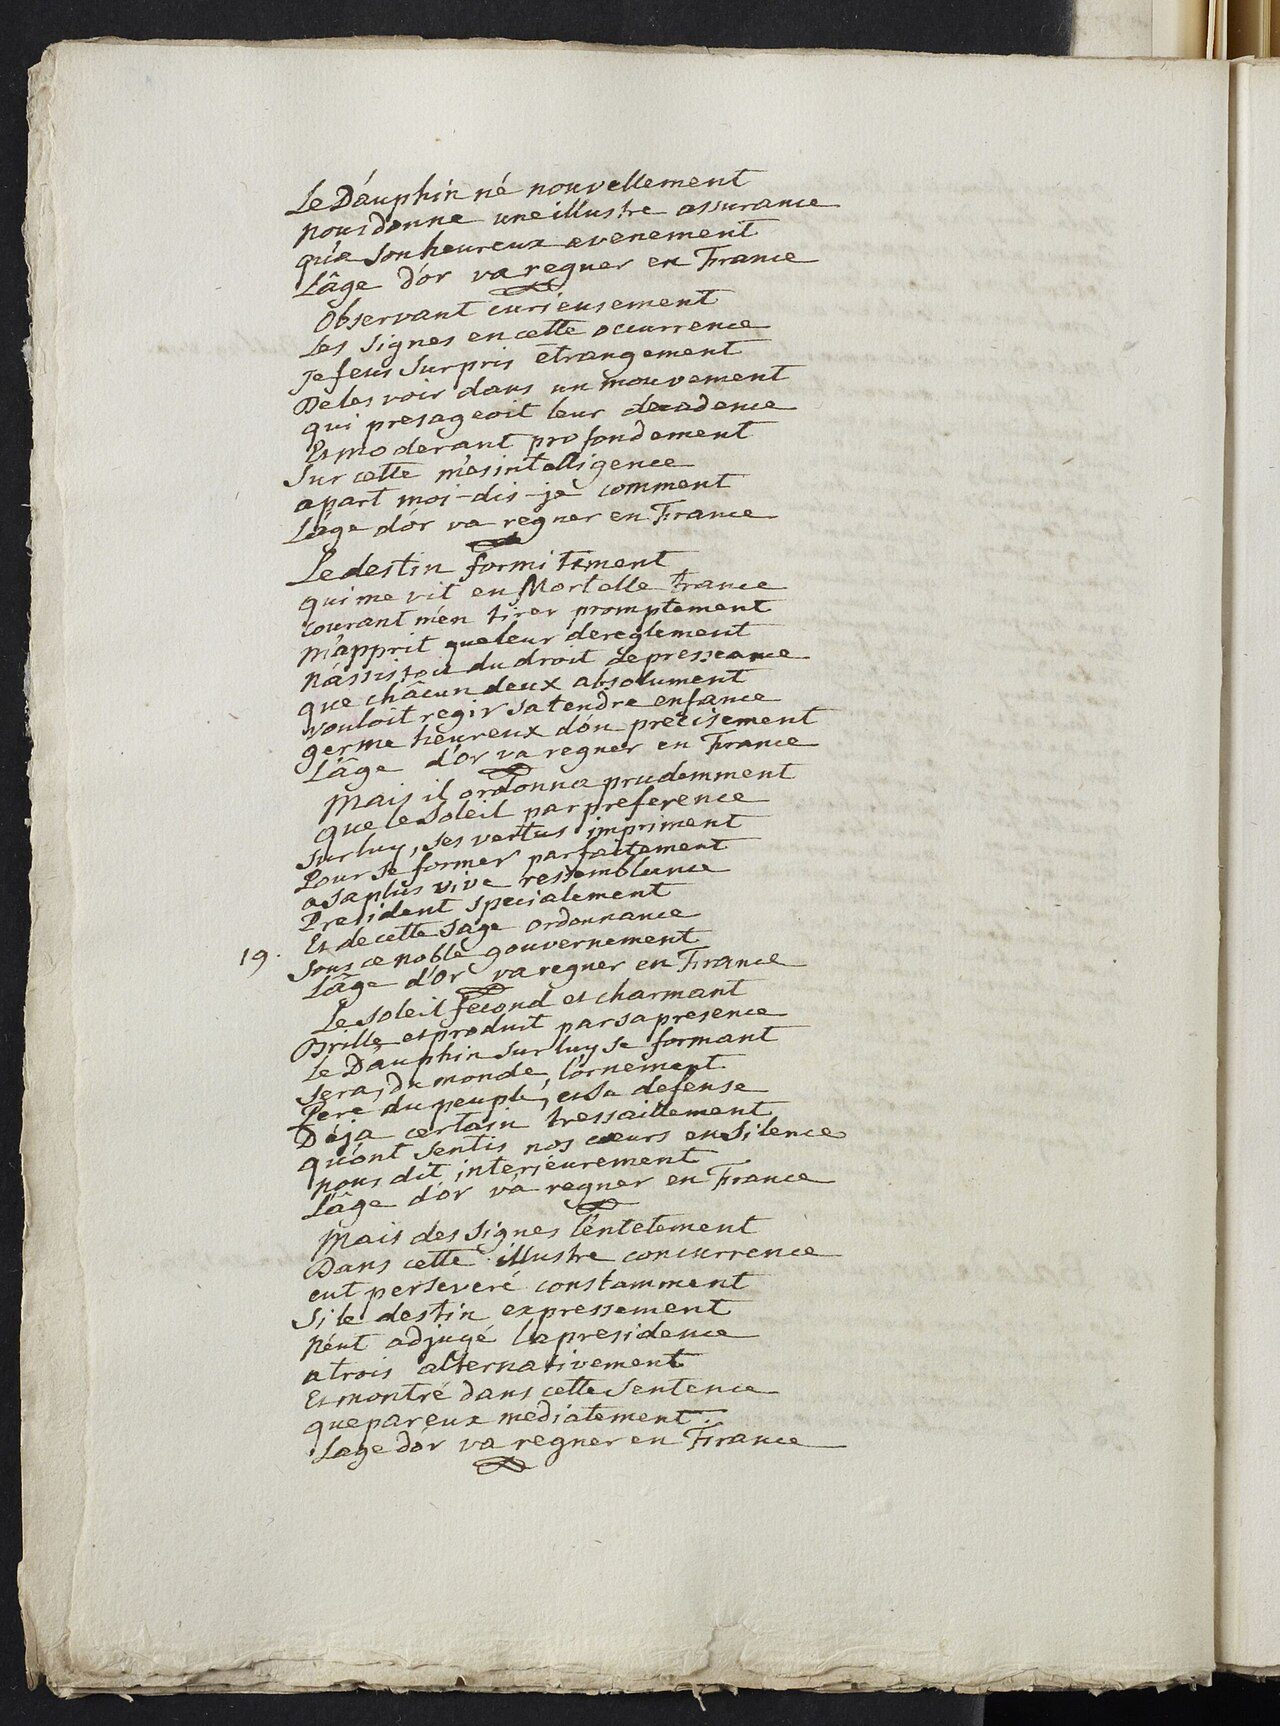 Le Dáuphin né nouvellement
nous donne une illustre assurance
qu'a son heureux evenement
L'âge d'or va regner en France
Observant curieusement
Les signes en cette occurrence
Je feus surpris etrangement
De les voir dans un mouvement
qui presageoit leur decadence
Et moderant profondement
Sur cette mésintelligence
apart moi-dis-je comment
L'age d'or va regner en France
Le destin formitement
qui me vit en Mortelle trance
courant m'en tirer promptement
m'apprit que leur dereglement
n'assistoit du droit de presseance
que châcun deux absolument
vouloit regir sa tendre enfance
germe heureux d'ou precisement
L'âge d'or va regner en France
Mais il ordonna prudemment
que le soleil par preference
sur luy, ses vertus impriment
Pour se former parfaitement
a sa plus vive ressemblance
President specialement
Et de cette sage ordonnance
19. sous ce noble gouvernement
L'âge d'Or va regner en France
Le soleil fecond et charmant
Brille et produit par sa presence
Le Dáuphin sur luy se formant
sera, du monde, l'ornement
Pere du peuple, et sa defense
Déja certain tressaillement
qu'ont sentis nos cœurs en silence
nous dit interieurement
L'âge d'or va regner en France
Mais des signes l'entetement
Dans cette illustre concurrence
eut perseveré constamment
Si le destin expressement
n'eut adjugé la presidence
a trois alternativement
Et montré dans cette sentence
que par eux mediatement.
L'age d'or va regner en France